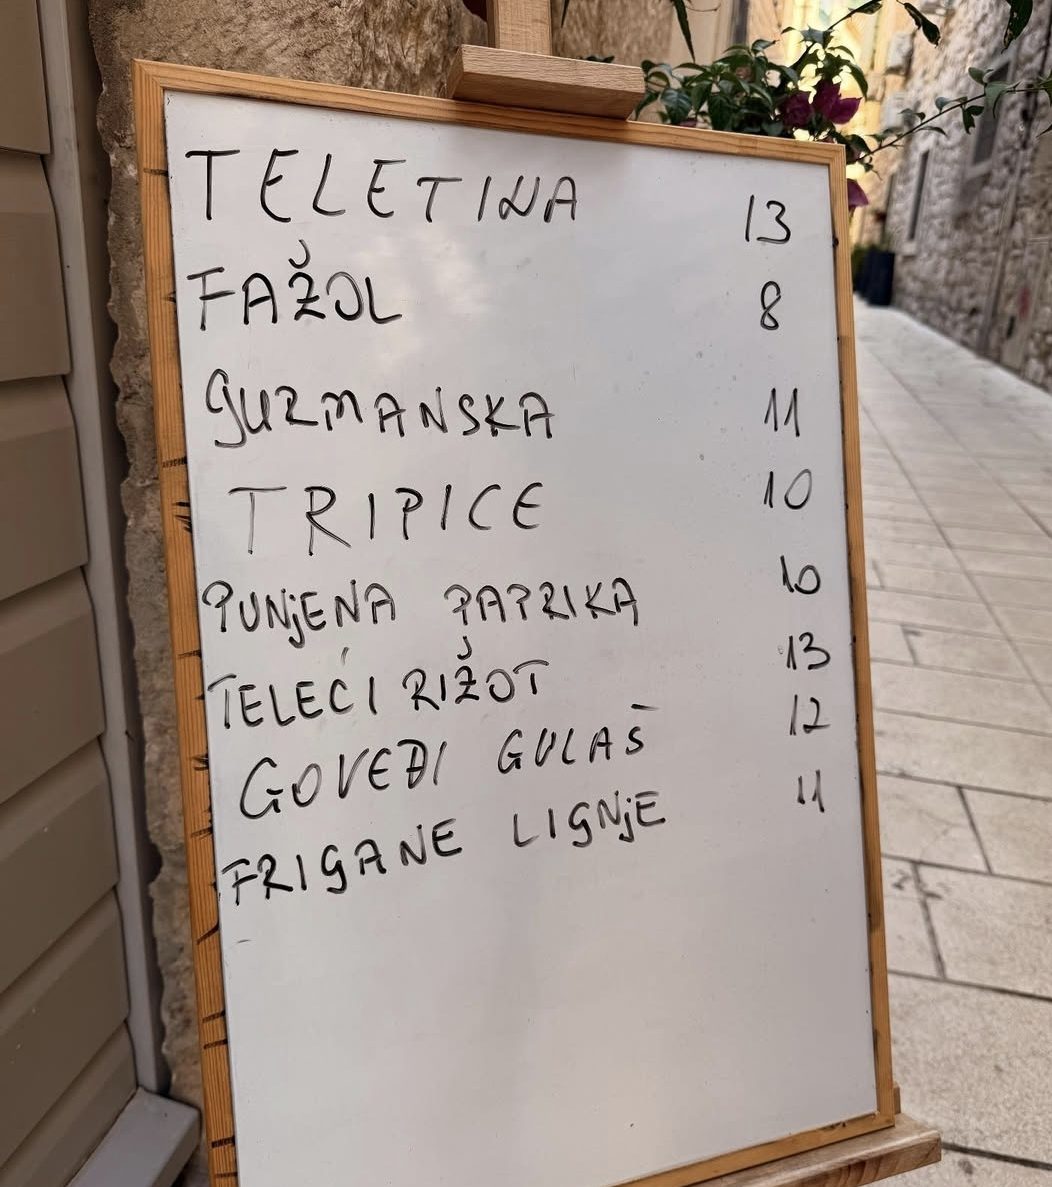 TELETINA 13
FAŽOL 8
GURMANSKA 11
TRIPICE 10
PUNjENA PAPRIKA 10
TELEĆI RIŽOT 13
GOVEĐI GULAŠ 12
FRIGANE LIGNjE 11